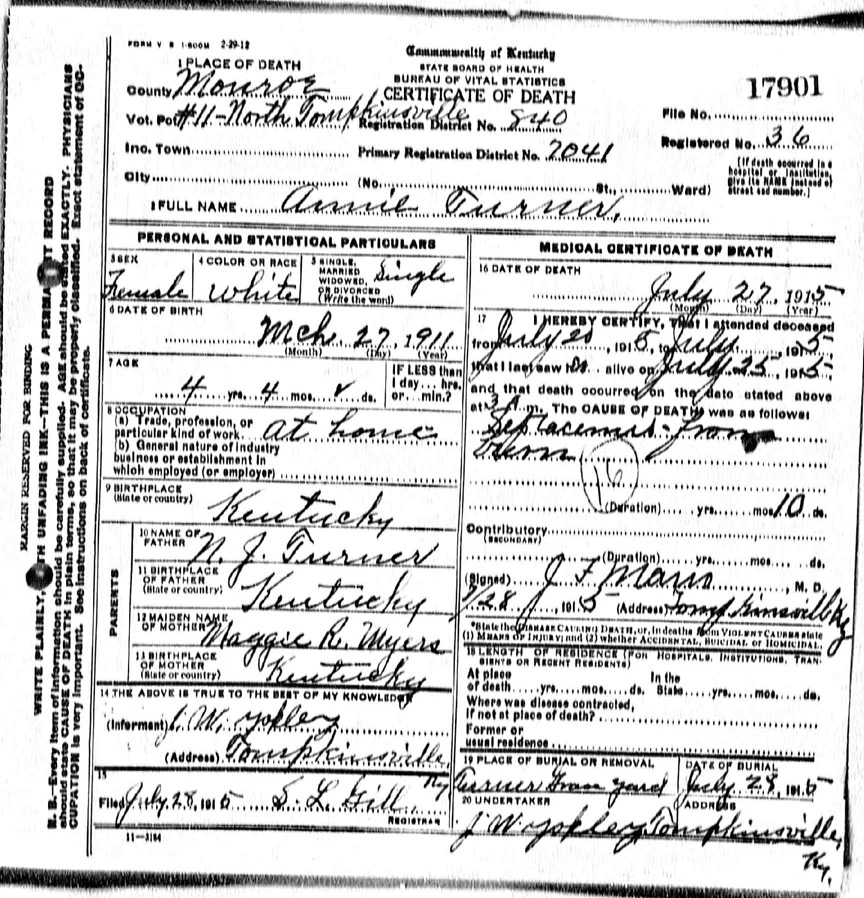 FORM V S 1-500M 2-29-12
Commonwealth of Kentucky
STATE BOARD OF HEALTH
BUREAU OF VITAL STATISTICS
CERTIFICATE OF DEATH
17901
1 PLACE OF DEATH
County Monroe
Vot. Pct #11-North Tompkinsville
Registration District No. 840
File No.
Inc. Town
Primary Registration District No. 7041
Registered No. 36
City
(No. St., Ward)
[If death occurred in a
hospital or institution,
give its NAME instead of
street and number.]
2 FULL NAME Annie Turner,
PERSONAL AND STATISTICAL PARTICULARS
3 SEX
Female
4 COLOR OR RACE
White
5 SINGLE,
MARRIED
WIDOWED,
OR DIVORCED
(Write the word)
Single
6 DATE OF BIRTH
Mch. 27, 1911
(Month) (Day) (Year)
7 AGE
4 yrs. 4 mos. ds.
IF LESS than
1 day... hrs.
or... min.?
8 OCCUPATION
(a) Trade, profession, or
particular kind of work at home
(b) General nature of industry
business or establishment in
which employed (or employer)
9 BIRTHPLACE
(State or country)
Kentucky
PARENTS
10 NAME OF
FATHER
N. J. Turner
11 BIRTHPLACE
OF FATHER
(State or country)
Kentucky
12 MAIDEN NAME
OF MOTHER
Maggie R. Myers
13 BIRTHPLACE
OF MOTHER
(State or country)
Kentucky
14 THE ABOVE IS TRUE TO THE BEST OF MY KNOWLEDGE
(Informant)
(Address) Tompkinsville,
Ky
15
Filed July 28, 1915 S. L. Gill
REGISTRAR
11-3184
MEDICAL CERTIFICATE OF DEATH
16 DATE OF DEATH
July 27, 1915
(Month) (Day) (Year)
17 I HEREBY CERTIFY, That I attended deceased
from July 20, 1915, to July 1915
that I last saw h alive on July 25, 1915,
and that death occurred on the date stated above
at 3 A. m. The CAUSE OF DEATH was as follows
from
(Duration) yrs. mos. 10 ds.
Contributory
(SECONDARY)
(Duration) yrs. mos. ds.
(Signed) J F , M. D.
7/28, 1915 (Address) Tompkinsville Ky
*State the DISEASE CAUSING DEATH, or, in deaths from VIOLENT CAUSES state
(1) MEANS OF INJURY; and (2) whether ACCIDENTAL, SUICIDAL or HOMICIDAL.
18 LENGTH OF RESIDENCE (FOR HOSPITALS, INSTITUTIONS, TRAN-
SIENTS OR RECENT RESIDENTS)
At place
of death yrs. mos. ds.
In the
State yrs. mos. ds.
Where was disease contracted,
If not at place of death?
Former or
usual residence
19 PLACE OF BURIAL OR REMOVAL
Turner Grave yard
DATE OF BURIAL
July 28, 1915
20 UNDERTAKER
J W
ADDRESS
Tompkinsville,
Ky.
MARGIN RESERVED FOR BINDING
WRITE PLAINLY, WITH UNFADING INK—THIS IS A PERMANENT RECORD
N. B.—Every item of information should be carefully supplied. AGE should be stated EXACTLY. PHYSICIANS
should state CAUSE OF DEATH in plain terms, so that it may be properly classified. Exact statement of OC-
CUPATION is very important. See instructions on back of certificate.